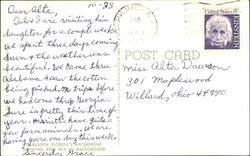 10-28
Dear Alta,
Jules & I are visiting his
daughter for a couple weeks
we spent three days coming
down & the weather was
beautiful. We came thru
Alabama & saw the cotton
being picked. On trips before
we had come thru Georgia.
Sure is pretty this time of
year. have quite a
few farm animals. We are
having one day this week.
Sincerely, Grace
POST CARD
EINSTEIN
8c
Miss Alta Dawson
301 Maplewood
Willard, Ohio 44890
SARASOTA, FLORIDA'S WATERFRONT
IN BACKGROUND